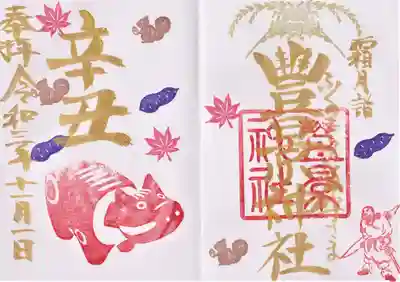 霜月詣
豊景神社
豊景
神社
辛丑
奉拝 令和三年十一月一日